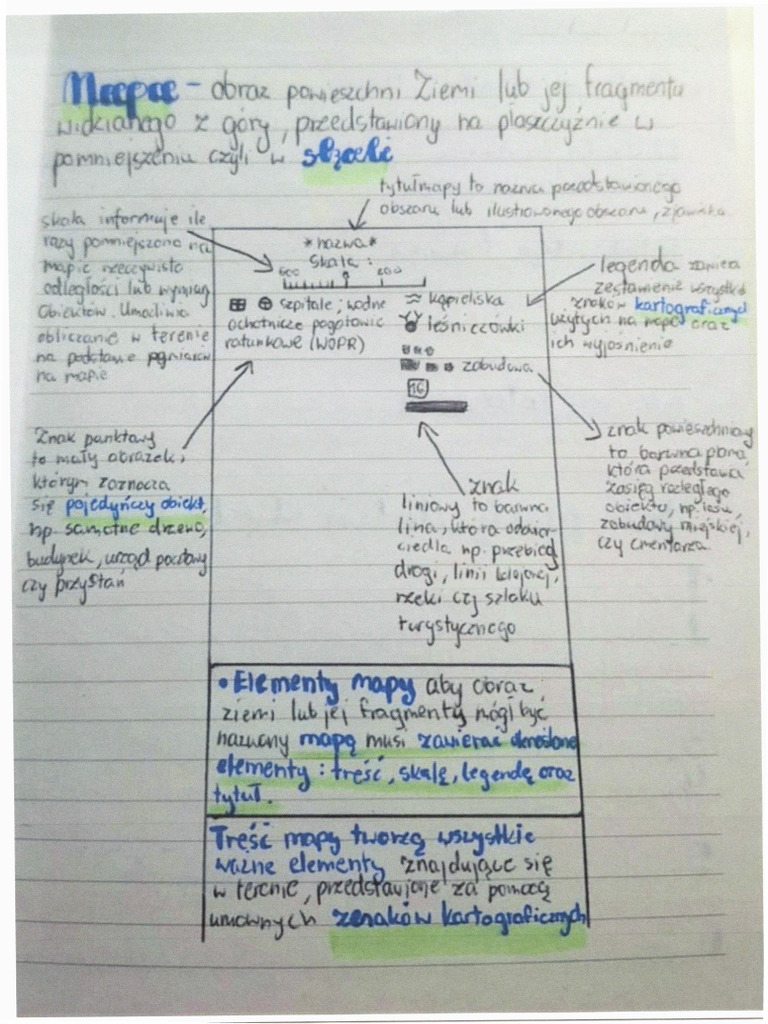 Mapa - obraz powieszchni Ziemi lub jej fragmentu
widzianego z góry, przedstawiony na płaszczyźnie w
pomniejszeniu czyli w skali
tytuł mapy to nazwa przedstawionego
obszaru lub ilustrowanego obszaru, zjawiska
skala informuje ile
razy pomniejszono na
mapie rzeczywiste
odległości lub wymiary
obiektów. Umożliwia
obliczanie w terenie
na podstawie pomiarów
na mapie
*nazwa*
skala:
600 0 200
szpitale; wodne
ochotnicze pogotowie
ratunkowe (WOPR)
kąpieliska
leśniczówki
zabudowa
16
legenda zawiera
zestawienie wszystkich
znaków kartograficznych
użytych na mapie oraz
ich wyjaśnienie
Znak punktowy
to mały obrazek,
którym zaznacza
się pojedyńczy obiekt,
np. samotne drzewo,
budynek, urząd pocztowy
czy przystań
znak
liniowy to barwna
linia, która odzwier-
ciedla np. przebieg
drogi, linii kolejowej,
rzeki czy szlaku
turystycznego
znak powieszchniowy
to barwna plama
która przedstawia
zasięg rozległego
obiektu, np. lasu,
zabudowy miejskiej,
czy cmentarza.
• Elementy mapy aby obraz
ziemi lub jej fragmenty mógł być
nazwany mapą musi zawierać określone
elementy : treść, skalę, legendę oraz
tytuł.
Treść mapy tworzą wszystkie
ważne elementy znajdujące się
w terenie, przedstawione za pomocą
umownych zenaków kartograficznych